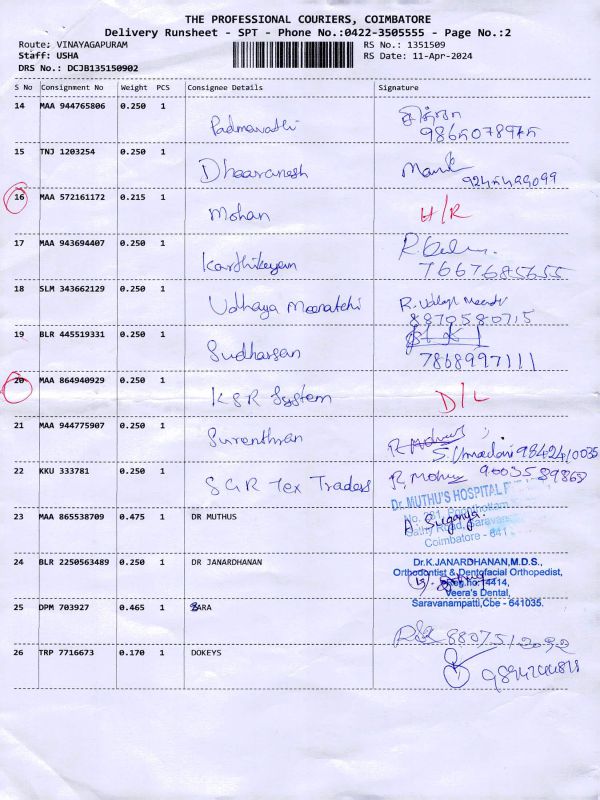 THE PROFESSIONAL COURIERS, COIMBATORE
Delivery Runsheet - SPT - Phone No.:0422-3505555 - Page No.:2
Route: VINAYAGAPURAM RS No.: 1351509
Staff: USHA RS Date: 11-Apr-2024
DRS No.: DCJB135150902
S No Consignment No Weight PCS Consignee Details Signature
14 MAA 944765806 0.250 1
Padmavathi
15 TNJ 1203254 0.250 1
Dhaaranesh
16 MAA 572161172 0.215 1
Mohan H/R
17 MAA 943694407 0.250 1
Karthikeyan
7667685655
18 SLM 343662129 0.250 1
Udhaya Meenatchi
8870580715
19 BLR 445519331 0.250 1
Sudharsan
7868997111
20 MAA 864940929 0.250 1
KSR System D/L
21 MAA 944775907 0.250 1
Surenthran
9842410035
22 KKU 333781 0.250 1
SGR Tex Traders R. Mohan 9003589868
Dr. MUTHU'S HOSPITAL
23 MAA 865538709 0.475 1 DR MUTHUS
Suganya
Coimbatore - 641
24 BLR 2250563489 0.250 1 DR JANARDHANAN Dr.K.JANARDHANAN,M.D.S.,
Orthodontist & Dentofacial Orthopedist,
Reg.no:14414,
Veera's Dental,
Saravanampatti,Cbe - 641035.
25 DPM 703927 0.465 1 ZARA
8807512092
26 TRP 7716673 0.170 1 DOKEYS